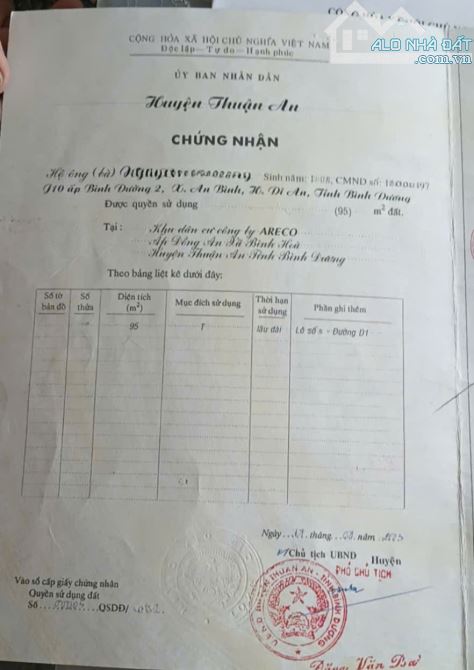 CỘNG HÒA XÃ HỘI CHỦ NGHĨA VIỆT NAM
Độc lập – Tự do – Hạnh phúc
ALO NHÀ ĐẤT
.com.vn
ỦY BAN NHÂN DÂN
Huyện Thuận An
CHỨNG NHẬN
Hộ ông (bà) Sinh năm: CMND số:
J10 ấp Bình Đường 2, X. An Bình, H. Dĩ An, Tỉnh Bình Dương
Được quyền sử dụng (95) m² đất.
Tại : Khu dân cư công ty ARECO
Ấp Đông An Xã Bình Hoà
Huyện Thuận An Tỉnh Bình Dương
Theo bảng liệt kê dưới đây:
Số tờ bản đồ Số thửa Diện tích (m²) Mục đích sử dụng Thời hạn sử dụng Phần ghi thêm
95 T lâu dài Lô số - Đường D1
Ngày tháng năm
Chủ tịch UBND , Huyện
PHÓ CHỦ TỊCH
U.B.N.D HUYỆN THUẬN AN - TỈNH BÌNH DƯƠNG
Vào sổ cấp giấy chứng nhận
Quyền sử dụng đất
Số QSDĐ/
Đặng Văn Ba